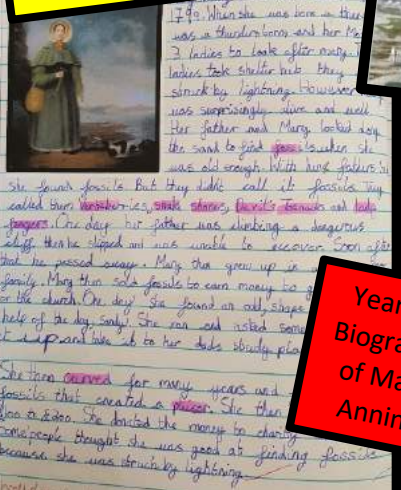 1799. When she was born in there
was a thunderstorm and her Mum
3 ladies to look after mary. T
ladies took shelter but they
struck by lightning. However
was surprisingly alive and well.
Her father and Mary looked along
the sand to find fossils when she
was old enough. With hers father's
she found fossils. But they didn't call it fossils they
called them snake stones, Devil's and lady
fingers. One day her father was climbing a dangerous
cliff then he slipped and was unable to recover. Soon after
that he passed away. Mary then grew up in a
family. Mary then sold fossils to earn money to g
or the church. One day she found an odd, shape
help of the dog, She ran and asked some
it up and take it to her dads study place
She then carved for many years and
fossils that created a She then
£100 to £200. She donated the money to charity
Some people thought she was good at finding fossils
because she was struck by lightning.
Year
Biogra
of Ma
Annin